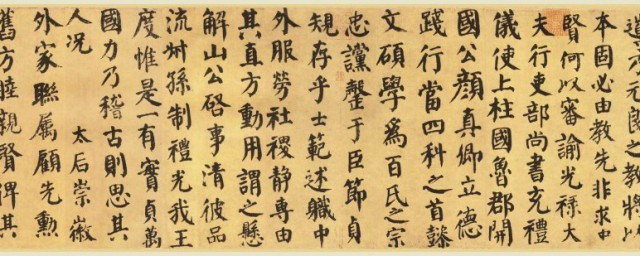 乃元良之教將以
本固必由教先非求
賢何以審諭光祿大
夫行吏部尚書充禮
儀使上柱國魯郡開
國公顏真卿立德
踐行當四科之首懿
文碩學為百氏之宗
忠讜罄于臣節貞
規存乎士範述職中
外服勞社稷靜專由
其直方動用謂之懸
解山公啓事清彼品
流叔孫制禮光我王
度惟是一有實貞萬
國力乃稽古則思其
人况 太后崇徽
外家聯属顧先勳
舊方睦親賢俾其